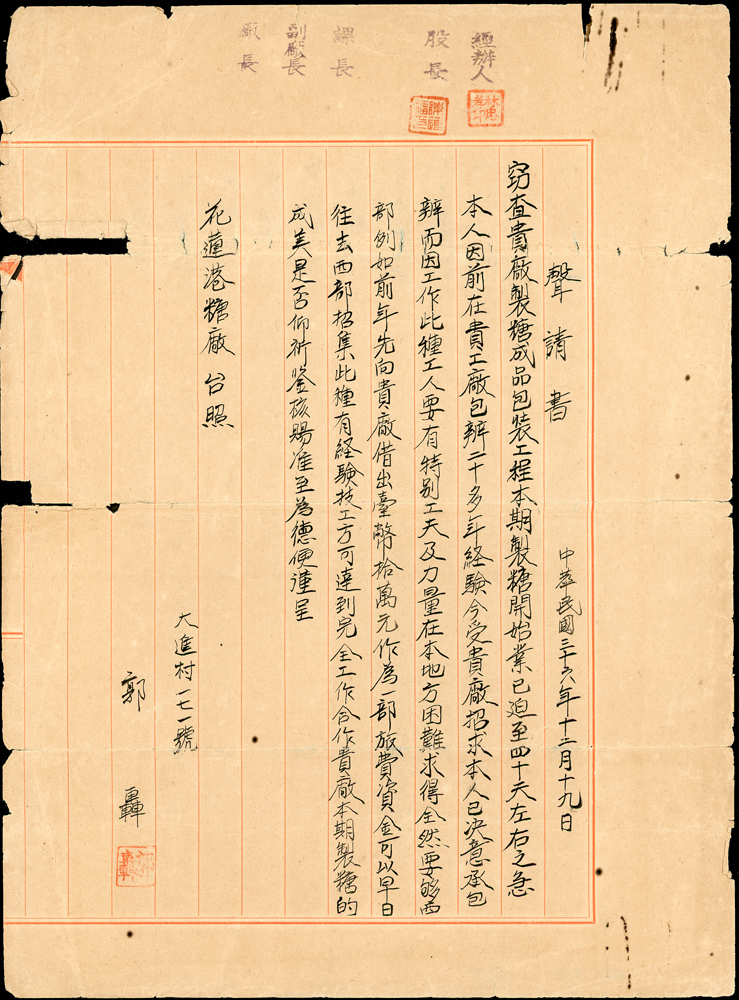 經辦人
股長
課長
副廠長
廠長
聲請書
中華民國三十六年十二月十九日
窃查貴廠製糖成品包裝工程本期製糖開始業已迫至四十天左右之急
本人因前在貴工廠包辨二十多年経験今受貴廠招求本人已決意承包
辨而因工作此種工人要有特别工夫及力量在本地方困難求得全然要够西
部例如前年先向貴廠借出臺幣拾萬元作為一部旅費資金可以早日
往去西部招集此種有経験技工方可達到完全工作合作貴廠本期製糖的
成美是否仰祈鉴核賜准至為德便謹呈
花蓮港糖廠 台照
大進村一七一號
郭轟